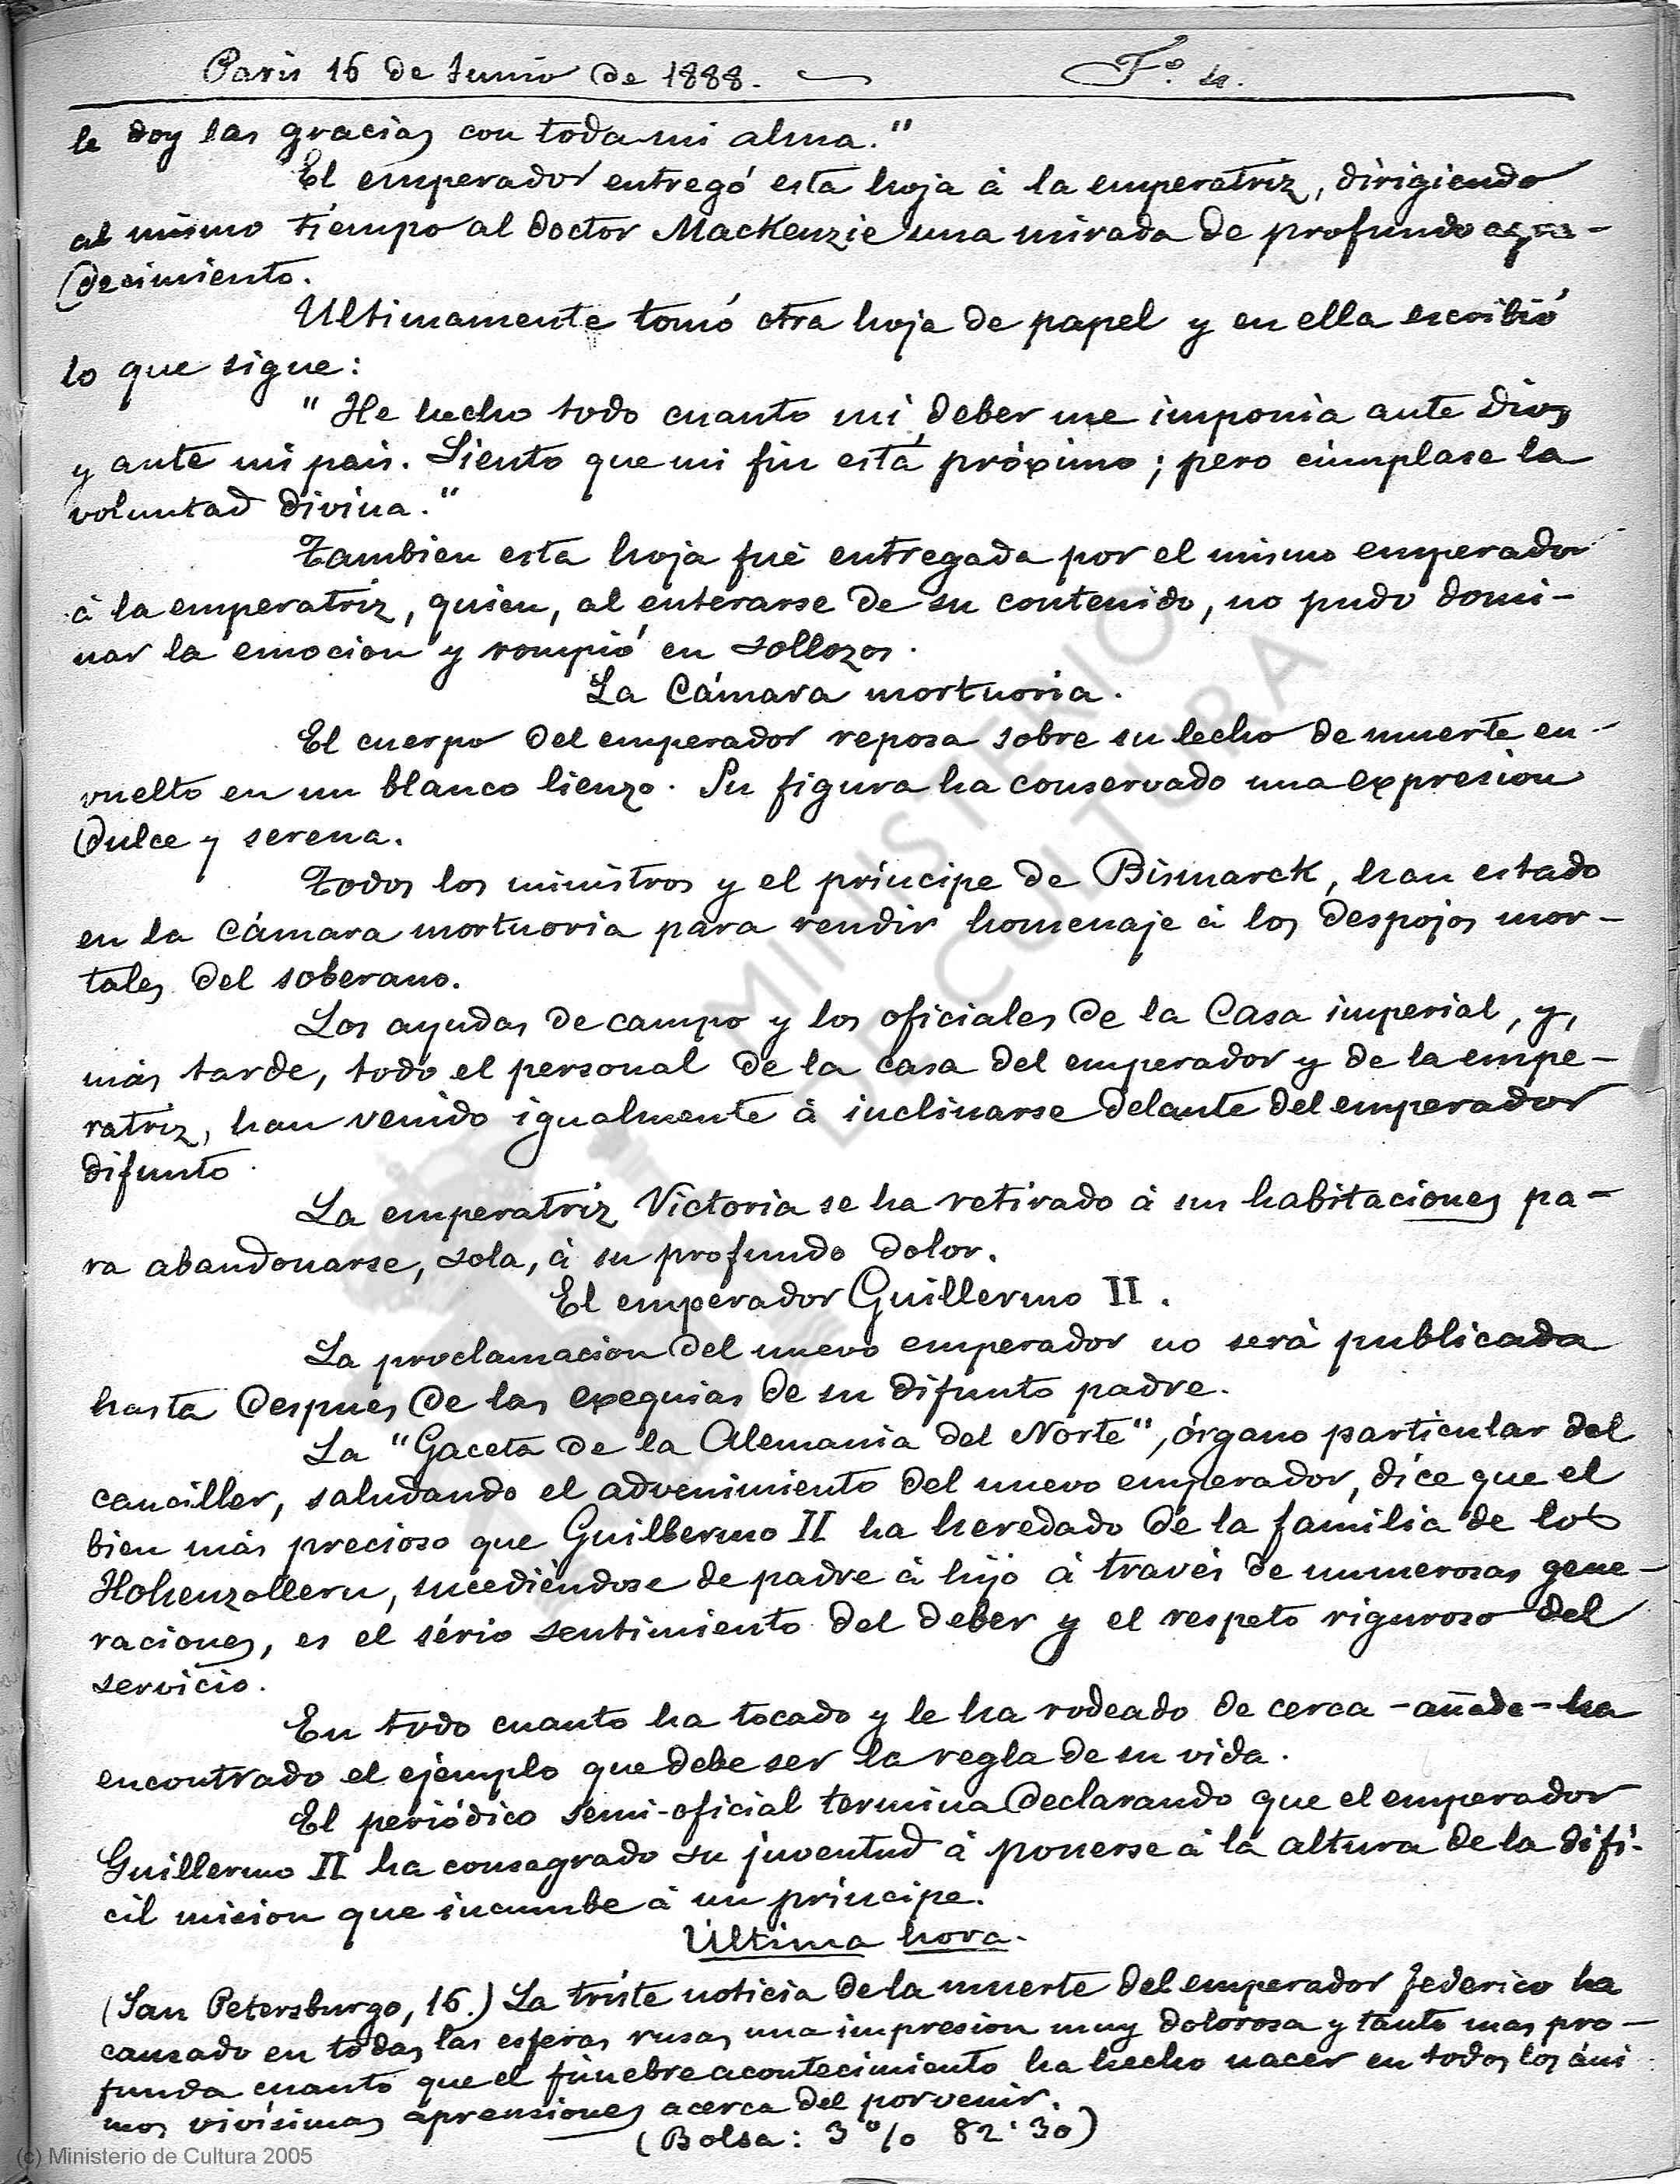 Paris 16 de Junio de 1888. Fº. 4.
le doy las gracias con toda mi alma."
El emperador entregó esta hoja á la emperatriz, dirigiendo
al mismo tiempo al doctor MacKenzie una mirada de profundo agra-
decimiento.
Ultimamente tomó otra hoja de papel y en ella escribió
lo que sigue:
"He hecho todo cuanto mi deber me imponia ante Dios
y ante mi pais. Siento que mi fin está próximo; pero cúmplase la
voluntad divina."
Tambien esta hoja fué entregada por el mismo emperador
á la emperatriz, quien, al enterarse de su contenido, no pudo domi-
nar la emocion y rompió en sollozos.
La Cámara mortuoria.
El cuerpo del emperador reposa sobre su lecho de muerte en-
vuelto en un blanco lienzo. Su figura ha conservado una expresion
dulce y serena.
Todos los ministros y el príncipe de Bismarck, han estado
en la cámara mortuoria para rendir homenaje á los despojos mor-
tales del soberano.
Los ayudas de campo y los oficiales de la Casa imperial, y,
más tarde, todo el personal de la casa del emperador y de la empe-
ratriz, han venido igualmente á inclinarse delante del emperador
difunto.
La emperatriz Victoria se ha retirado á sus habitaciones pa-
ra abandonarse, sola, á su profundo dolor.
El emperador Guillermo II.
La proclamacion del nuevo emperador no será publicada
hasta despues de las exequias de su difunto padre.
La "Gaceta de la Alemania del Norte", órgano particular del
canciller, saludando el advenimiento del nuevo emperador, dice que el
bien más precioso que Guillermo II ha heredado de la familia de los
Hohenzollern, sucediéndose de padre á hijo á través de numerosas gene-
raciones, es el sério sentimiento del deber y el respeto riguroso del
servicio.
En todo cuanto ha tocado y le ha rodeado de cerca -añade- ha
encontrado el ejemplo que debe ser la regla de su vida.
El periódico semi-oficial termina declarando que el emperador
Guillermo II ha consagrado su juventud á ponerse á la altura de la difí-
cil mision que incumbe á un príncipe.
Última hora.
(San Petersburgo, 16.) La triste noticia de la muerte del emperador Federico ha
causado en todas las esferas rusas una impresion muy dolorosa y tanto mas pro-
funda cuanto que el fúnebre acontecimiento ha hecho nacer en todos los áni
mos vivísimas aprensiones acerca del porvenir.
(Bolsa: 3 % 82'30)
MINISTERIO
DE CULTURA
(c) Ministerio de Cultura 2005